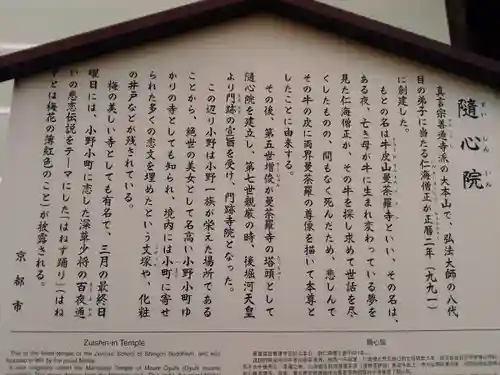 隨心院
ずいしんいん
真言宗善通寺派の大本山で、弘法大師の八代
目の弟子に当たる仁海僧正が正暦二年(九九一)
に創建した。
もとの名は牛皮山曼荼羅寺といい、その名は、
ある夜、亡き母が牛に生まれ変わっている夢を
見た仁海僧正が、その牛を探し求めて世話を尽
くしたものの、間もなく死んだため、悲しんで
その牛の皮に両界曼荼羅の尊像を描いて本尊と
したことに由来する。
その後、第五世増俊が曼荼羅寺の塔頭として
隨心院を建立し、第七世親厳の時、後堀河天皇
より門跡の宣旨を受け、門跡寺院となった。
この辺り小野は小野一族が栄えた場所である
ことから、絶世の美女として名高い小野小町ゆ
かりの寺としても知られ、境内には小町に寄せ
られた多くの恋文を埋めたという文塚や、化粧
の井戸などが残されている。
梅の美しい寺としても有名で、三月の最終日
曜日には、小野小町に恋した深草少将の百夜通
いの悲恋伝説をテーマにした「はねず踊り」(はね
ずとは梅花の薄紅色のこと)が披露される。
京都市
Zuishin-in Temple
隨心院